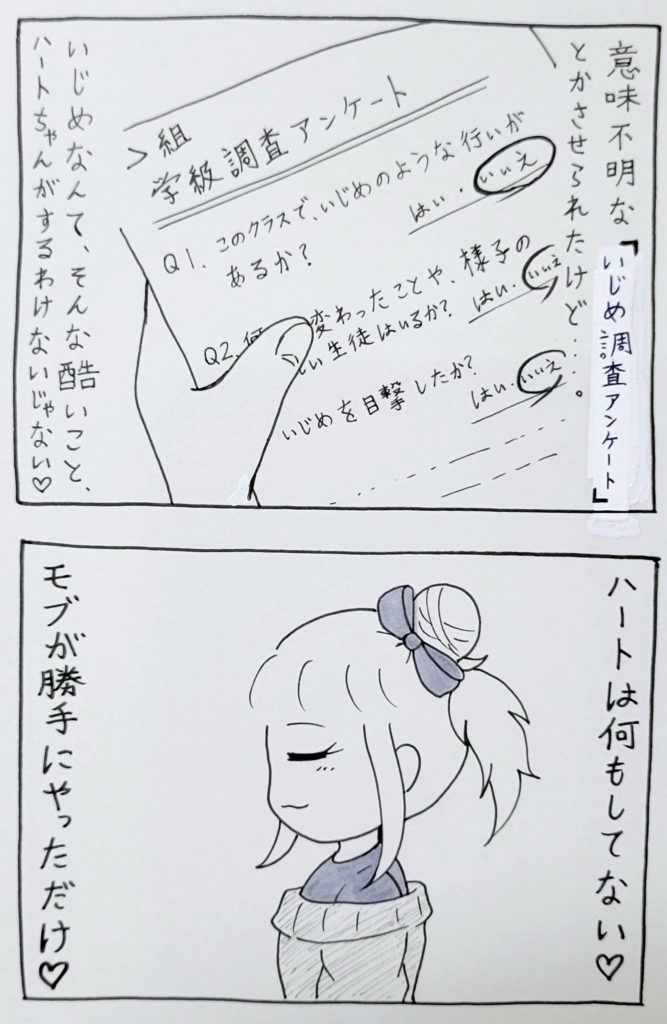 意味不明な「いじめ調査アンケート」
とかさせられたけど……。
>組
学級調査アンケート
Q1. このクラスで、いじめのような行いが
あるか?
はい・いいえ
Q2. 何 変わったことや、様子の
しい生徒はいるか?
はい・いいえ
いじめを目撃したか?
はい・いいえ
いじめなんて、そんな酷いこと、
ハートちゃんがするわけないじゃない♡
ハートは何もしてない♡
モブが勝手にやっただけ♡